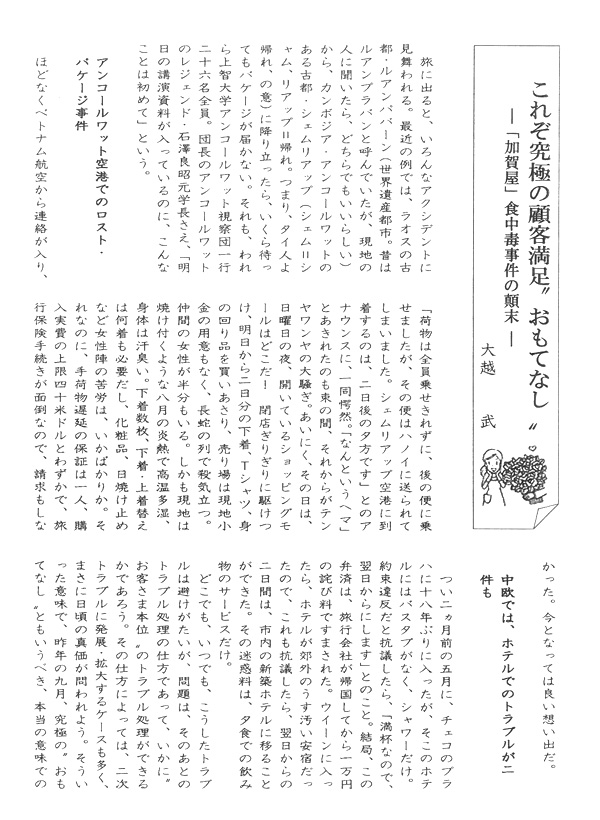 これぞ究極の顧客満足〝おもてなし〟
―「加賀屋」食中毒事件の顛末―
大越 武
旅に出ると、いろんなアクシデントに
見舞われる。最近の例では、ラオスの古
都・ルアンパバーン(世界遺産都市。昔は
ルアンプラバンと呼んでいたが、現地の
人に聞いたら、どちらでもいいらしい)
から、カンボジア・アンコールワットの
ある古都・シェムリアップ(シェム=シ
ャム、リアップ=帰れ。つまり、タイ人よ
帰れ、の意)に降り立ったら、いくら待っ
てもバゲージが届かない。それも、われ
ら上智大学アンコールワット視察団一行
二十六名全員。団長のアンコールワット
のレジェンド・石澤良昭元学長さえ、「明
日の講演資料が入っているのに、こんな
ことは初めて」という。
アンコールワット空港でのロスト・
バゲージ事件
ほどなくベトナム航空から連絡が入り、
「荷物は全員乗せきれずに、後の便に乗
せましたが、その便はハノイに送られて
しまいました。シェムリアップ空港に到
着するのは、二日後の夕方です」とのア
ナウンスに、一同愕然。「なんというヘマ」
とあきれたのも束の間、それからがテン
ヤワンヤの大騒ぎ。あいにく、その日は、
日曜日の夜、開いているショッピングモ
ールはどこだ! 閉店ぎりぎりに駆けつ
け、明日から二日分の下着、Tシャツ、身
の回り品を買いあさり、売り場は現地小
金の用意もなく、長蛇の列で殺気立つ。
仲間の女性が半分もいる。しかも現地は
焼け付くような八月の炎熱で高温多湿、
身体は汗臭い。下着数枚、下着・上着替え
は何着も必要だし、化粧品、日焼け止め
など女性陣の苦労は、いかばかりか。そ
れなのに、手荷物遅延の保証は一人、購
入実費の上限四十米ドルとわずかで、旅
行保険手続きが面倒なので、請求もしな
かった。今となっては良い想い出だ。
中欧では、ホテルでのトラブルが二
件も
つい二ヵ月前の五月に、チェコのプラ
ハに十八年ぶりに入ったが、そこのホテ
ルにはバスタブがなく、シャワーだけ。
約束違反だと抗議したら、「満杯なので、
翌日からにします」とのこと。結局、この
弁済は、旅行会社が帰国してから一万円
の詫び料ですまされた。ウイーンに入っ
たら、ホテルが郊外のうす汚い安宿だっ
たので、これも抗議したら、翌日からの
二日間は、市内の新築ホテルに移ること
ができた。その迷惑料は、夕食での飲み
物のサービスだけ。
どこでも、いつでも、こうしたトラブ
ルは避けがたいが、問題は、そのあとの
トラブル処理の仕方であって、いかに〝
お客さま本位〟のトラブル処理ができる
かであろう。その仕方によっては、二次
トラブルに発展・拡大するケースも多く、
まさに日頃の真価が問われよう。そうい
った意味で、昨年の九月、究極の〝おも
てなし〟ともいうべき、本当の意味での